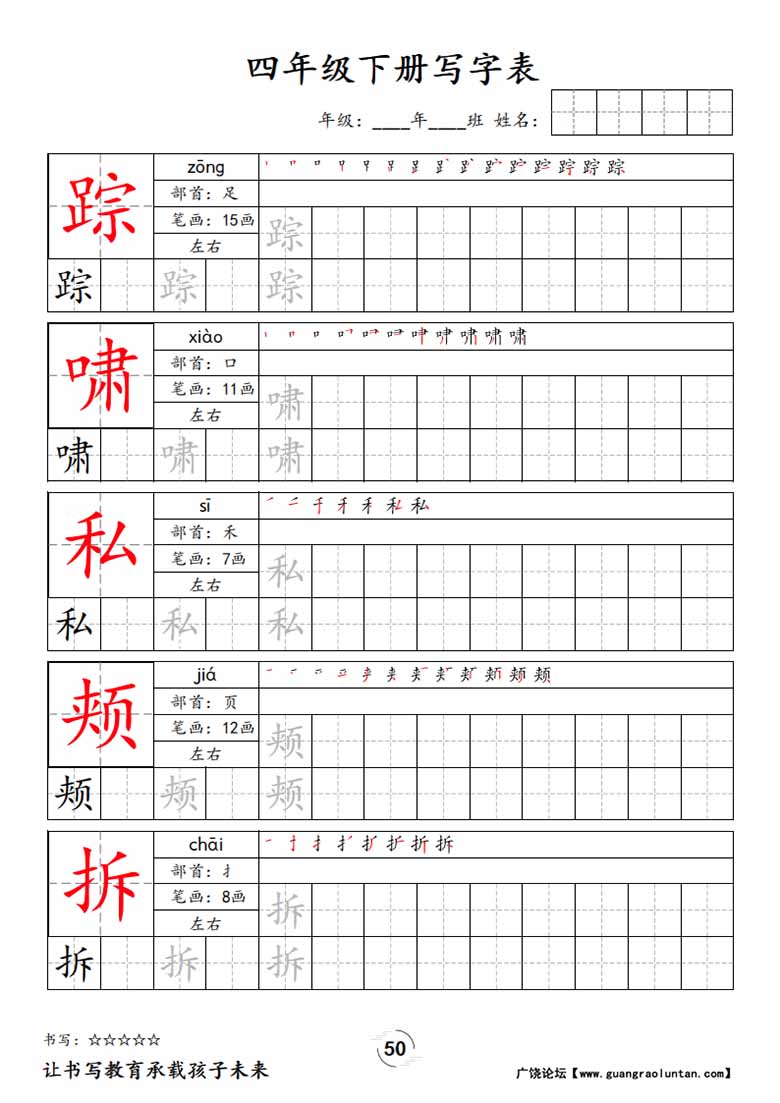 四年级下册写字表
年级：____年____班 姓名：
zōng
部首：足
笔画：15画
左右
踪
踪
踪
踪 踪
xiào
部首：口
笔画：11画
左右
啸
啸
啸
啸 啸
sī
部首：禾
笔画：7画
左右
私
私
私
私 私
jiá
部首：页
笔画：12画
左右
颊
颊
颊
颊 颊
chāi
部首：扌
笔画：8画
左右
拆
拆
拆
拆 拆
书写：☆☆☆☆☆
50
让书写教育承载孩子未来
广饶论坛【www.guangraoluntan.com】